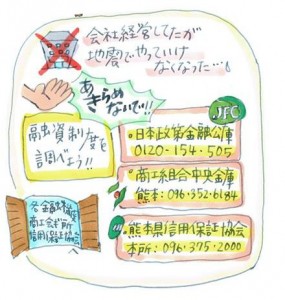 会社経営してたが
地震でやっていけ
なくなった…!
あきらめ
ないで!!
融資制度を
調べよう!!
JFC
日本政策金融公庫
0120-154-505
商工組合中央金庫
熊本:096-352-6184
熊本県信用保証協会
本所:096-375-2000
商工会議所
信用保証協会